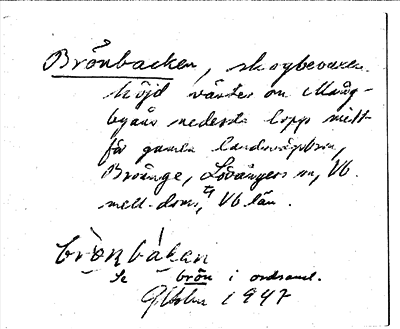 Brånbacken, skogbevuxen
höjd väster om Mång-
byåns nedersta lopp mitt
för gamla landsvägsbron,
Broänge, Lövångers sn, Vb.
mell. doms, Vb län.
brònbákan
Se brån i ordsaml.
1947